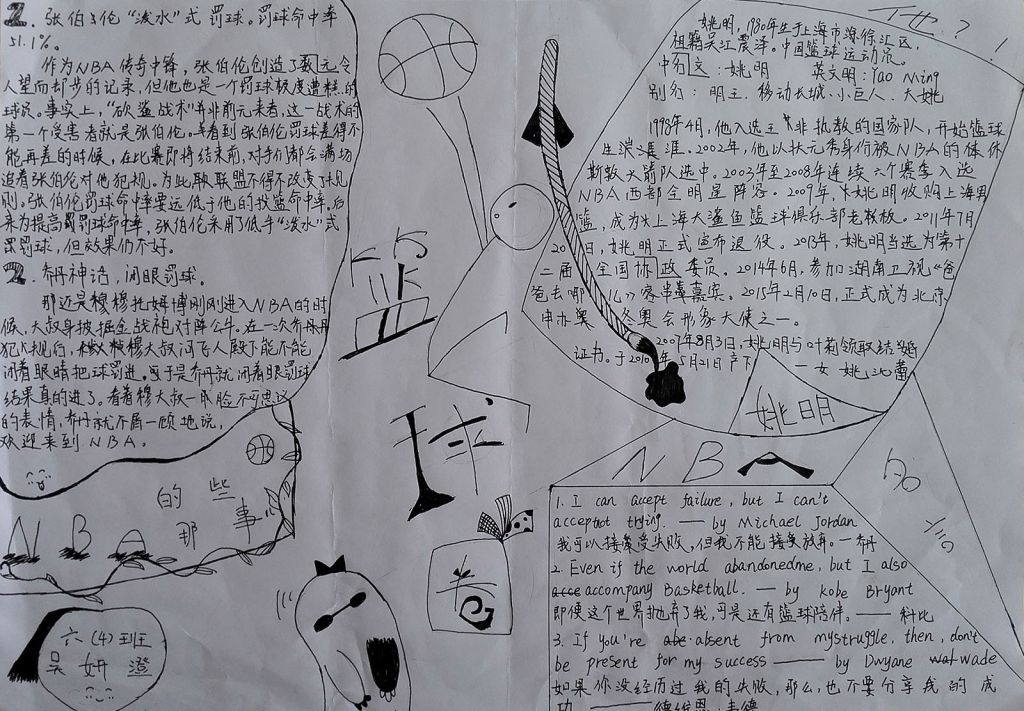 2. 张伯伦“泼水”式罚球。罚球命中率
51.1%。
作为NBA传奇中锋，张伯伦创造了数元令
人望而却步的记录，但他也是一个罚球极度遭糕的
球员。事实上，“砍鲨战术”并非前无来者，这一战术的
第一个受害者就是张伯伦。看到张伯伦罚球差得不
能再差的时候，在比赛即将结束前，对手们都会满场
追着张伯伦对他犯规。为此联盟不得不改变了规
则。张伯伦罚球命中率要远低于他的投篮命中率。后
来为提高罚球命中率，张伯伦采用了低手“泼水”式
罚球，但效果仍不好。
2. 乔丹神话，闭眼罚球。
那还是穆托姆博刚刚进入NBA的时
候，大叔身披掘金战袍对阵公牛。在一次乔丹
犯规后，穆大叔问飞人殿下能不能
闭着眼睛把球罚进。于是乔丹就闭着眼罚球
结果真的进了。看着穆大叔一脸不可思议
的表情，乔丹就不屑一顾地说，
欢迎来到NBA。
NBA
的那些事
六(4)班
吴妍澄
篮
球
卷
姚明，1980年生于上海市徐汇区，
祖籍吴江震泽。中国篮球运动员。
中文：姚明 英文明：Yao Ming
别名：明王、移动长城、小巨人、大姚
1998年4月，他入选王非执教的国家队，开始篮球
生涯。2002年，他以状元秀身份被NBA的休
斯敦火箭队选中。2003年至2008年连续六个赛季入选
NBA西部全明星阵容。2009年，姚明收购上海男
篮，成为上海大鲨鱼篮球俱乐部老板。2011年7月
20日，姚明正式宣布退役。2013年，姚明当选为第十
二届全国政协委员。2014年6月，参加湖南卫视《爸
爸去哪儿》客串嘉宾。2015年2月10日，正式成为北京
申办冬奥会形象大使之一。
2007年8月3日，姚明与叶莉领取结婚
证书。于2010年5月21日产下一女姚沁蕾
姚明
NBA
名言
1. I can accept failure, but I can't
accept not trying. —— by Michael Jordan
我可以接受失败，但我不能接受放弃。—乔丹
2. Even if the world abandonedme, but I also
accompany Basketball. —— by kobe Bryant
即使这个世界抛弃了我，可是还有篮球陪伴。—— 科比
3. If you're absent from mystruggle, then, don't
be present for my success —— by Dwyane wade
如果你没经历过我的失败，那么，也不要分享我的成
功 ——— 德维恩·韦德